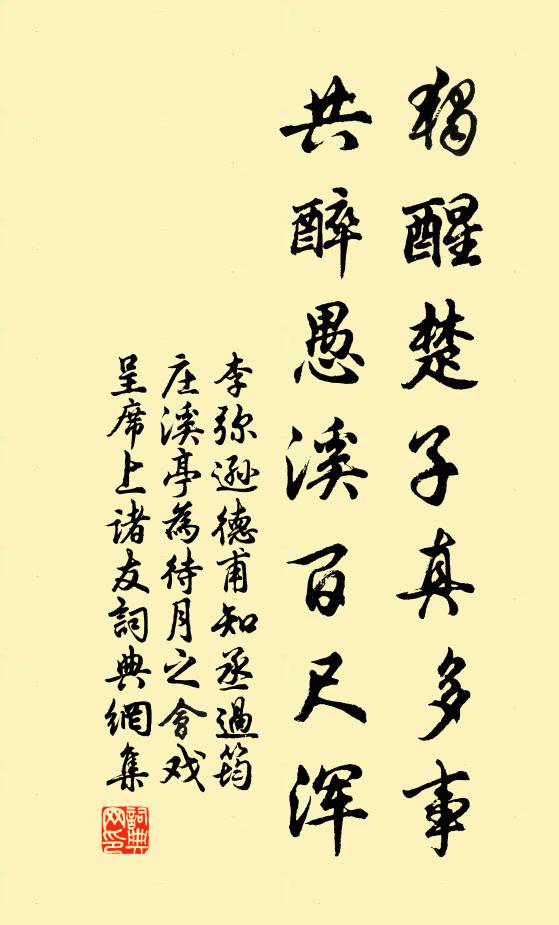 獨醒楚子真多事
共醉愚溪百尺浑
李弥逊德甫知丞過筠
庄溪亭為待月之會戏
呈席上诸友詞典網集
詞典网印